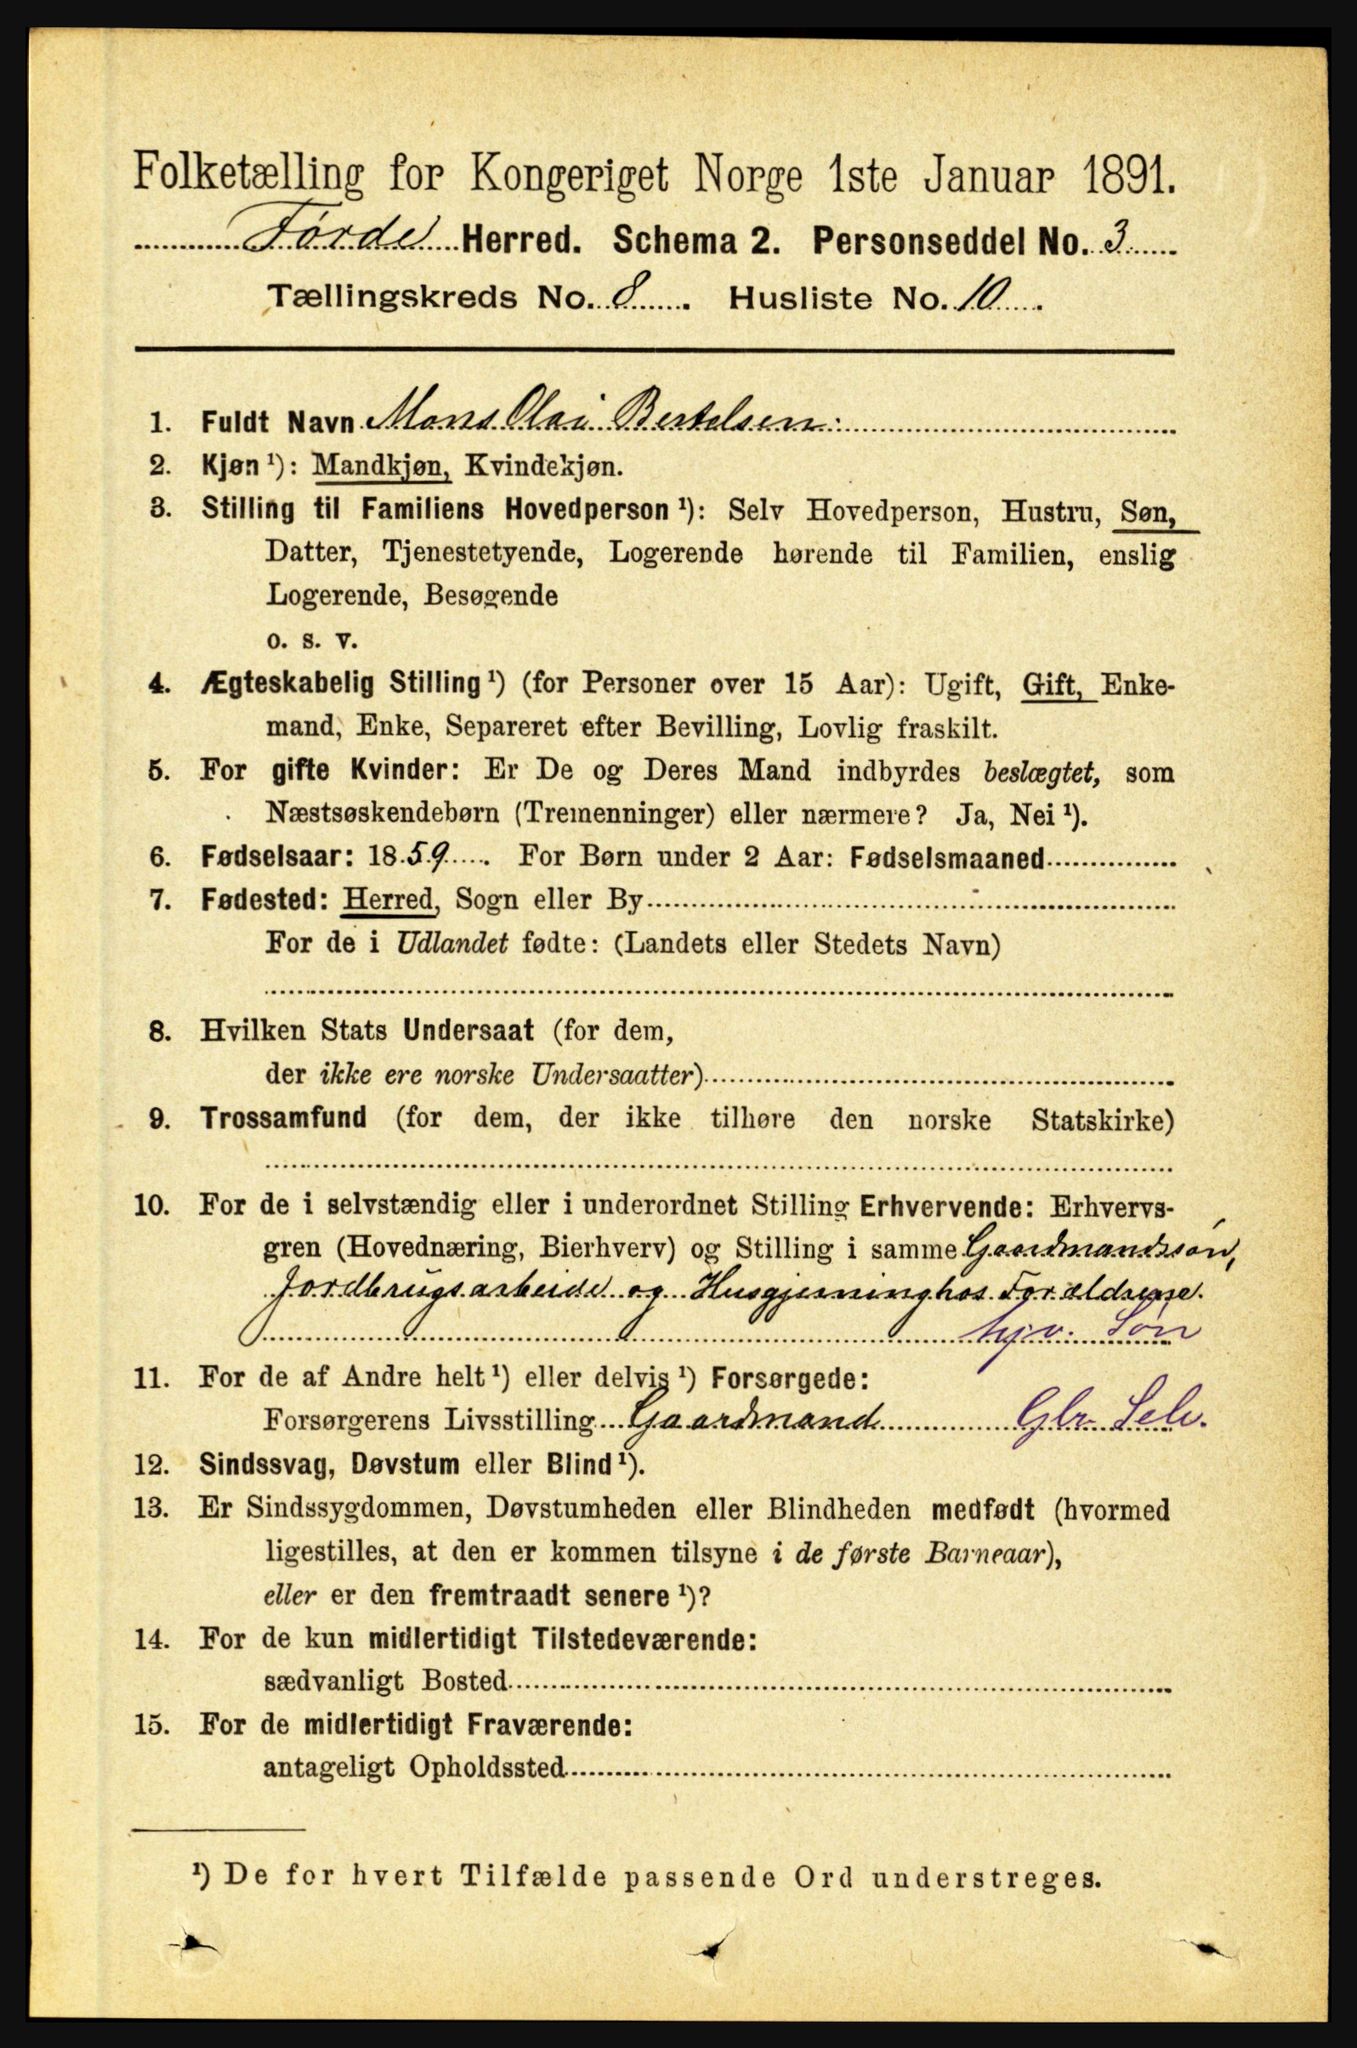 Folketælling for Kongeriget Norge 1ste Januar 1891.
Førde Herred. Schema 2. Personseddel No. 3
Tællingskreds No. 8. Husliste No. 10.
1. Fuldt Navn Mons Olai Bertelsen
2. Kjøn ¹): Mandkjøn, Kvindekjøn.
3. Stilling til Familiens Hovedperson ¹): Selv Hovedperson, Hustru, Søn,
Datter, Tjenestetyende, Logerende hørende til Familien, enslig
Logerende, Besøgende
o. s. v.
4. Ægteskabelig Stilling ¹) (for Personer over 15 Aar): Ugift, Gift, Enke-
mand, Enke, Separeret efter Bevilling, Lovlig fraskilt.
5. For gifte Kvinder: Er De og Deres Mand indbyrdes beslægtet, som
Næstsøskendebørn (Tremenninger) eller nærmere? Ja, Nei ¹).
6. Fødselsaar: 1859. For Børn under 2 Aar: Fødselsmaaned
7. Fødested: Herred, Sogn eller By
For de i Udlandet fødte: (Landets eller Stedets Navn)
8. Hvilken Stats Undersaat (for dem,
der ikke ere norske Undersaatter)
9. Trossamfund (for dem, der ikke tilhøre den norske Statskirke)
10. For de i selvstændig eller i underordnet Stilling Erhvervende: Erhvervs-
gren (Hovednæring, Bierhverv) og Stilling i samme Gaardmandssøn,
Jordbrugsarbeide og Husgjerning hos Forældrene
hjv. Søn
11. For de af Andre helt ¹) eller delvis ¹) Forsørgede:
Forsørgerens Livsstilling Gaardmand Gbr Selv.
12. Sindssvag, Døvstum eller Blind ¹).
13. Er Sindssygdommen, Døvstumheden eller Blindheden medfødt (hvormed
ligestilles, at den er kommen tilsyne i de første Barneaar),
eller er den fremtraadt senere ¹)?
14. For de kun midlertidigt Tilstedeværende:
sædvanligt Bosted
15. For de midlertidigt Fraværende:
antageligt Opholdssted
¹) De for hvert Tilfælde passende Ord understreges.